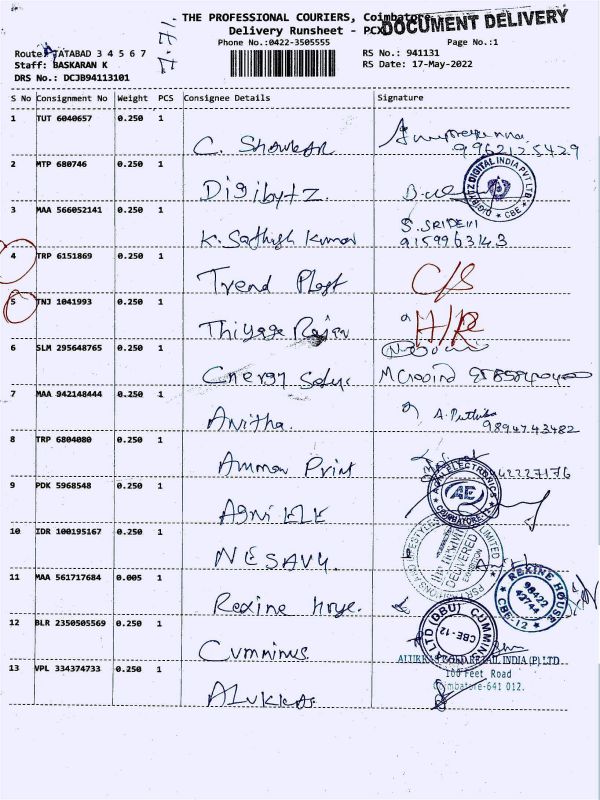 THE PROFESSIONAL COURIERS, Coimbatore
DOCUMENT DELIVERY
Delivery Runsheet - PCX
Phone No.:0422-3505555
Page No.:1
Route: TATABAD 3 4 5 6 7
RS No.: 941131
Staff: BASKARAN K
RS Date: 17-May-2022
DRS No.: DCJB94113101
S No Consignment No Weight PCS Consignee Details Signature
1 TUT 6040657 0.250 1
C. Shankar
9962125429
2 MTP 680746 0.250 1
Digibytz
DIGIBYTZ DIGITAL INDIA PVT LTD
CBE
3 MAA 566052141 0.250 1
K. Sathish Kumar
S. SRIDEVI
9159963143
4 TRP 6151869 0.250 1
Trend Plast C/S
5 TNJ 1041993 0.250 1
Thiyaga Rajan H/R
6 SLM 295648765 0.250 1
Energy
7 MAA 942148444 0.250 1
Anitha
9894743482
8 TRP 6804080 0.250 1
Amman Print
9 PDK 5968548 0.250 1
Agni ELE
AGNI ELECTRONICS
AE
COIMBATORE-12
10 IDR 100195167 0.250 1
NESAVU
DELIVERED
LIMITED
11 MAA 561717684 0.005 1
Rexine House
REXINE HOUSE
98422
CBE-12
12 BLR 2350505569 0.250 1
Cummins
LTD (DBU) CUMMINS
CBE-12
13 VPL 334374733 0.250 1
Alukkas
INDIA (P) LTD
100 Feet Road
Coimbatore-641 012.